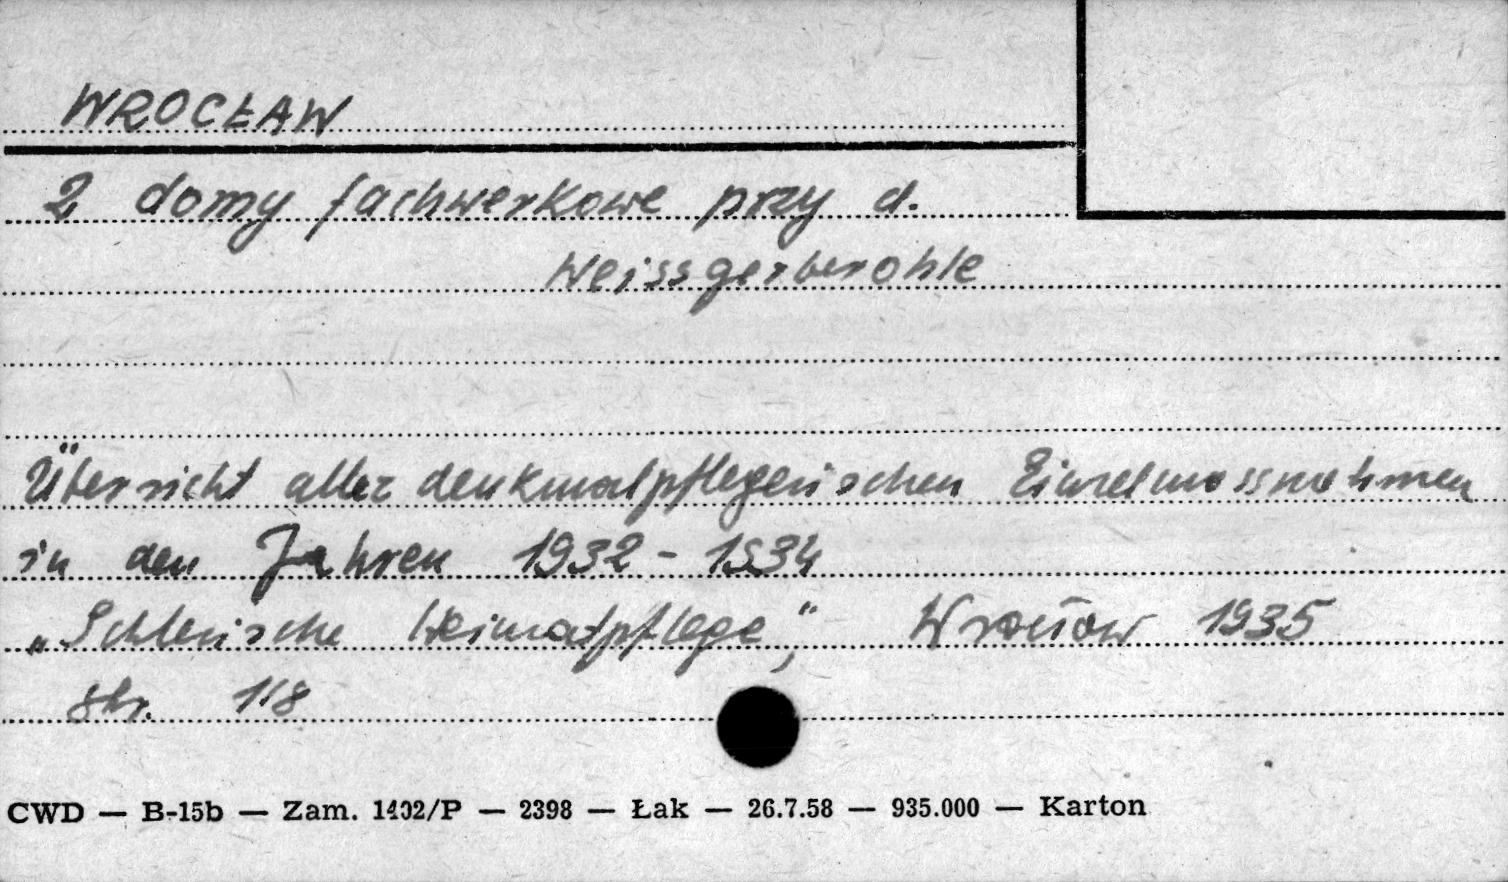 WROCŁAW
2 domy fachwerkowe przy d.
Weissgerberohle
Übersicht aller denkmalpflegerischen Einzelmassnahmen
in den Jahren 1932 - 1934
„Schlesische Heimatpflege“, Wrocław 1935
str. 118
CWD — B-15b — Zam. 1402/P — 2398 — Łak — 26.7.58 — 935.000 — Karton